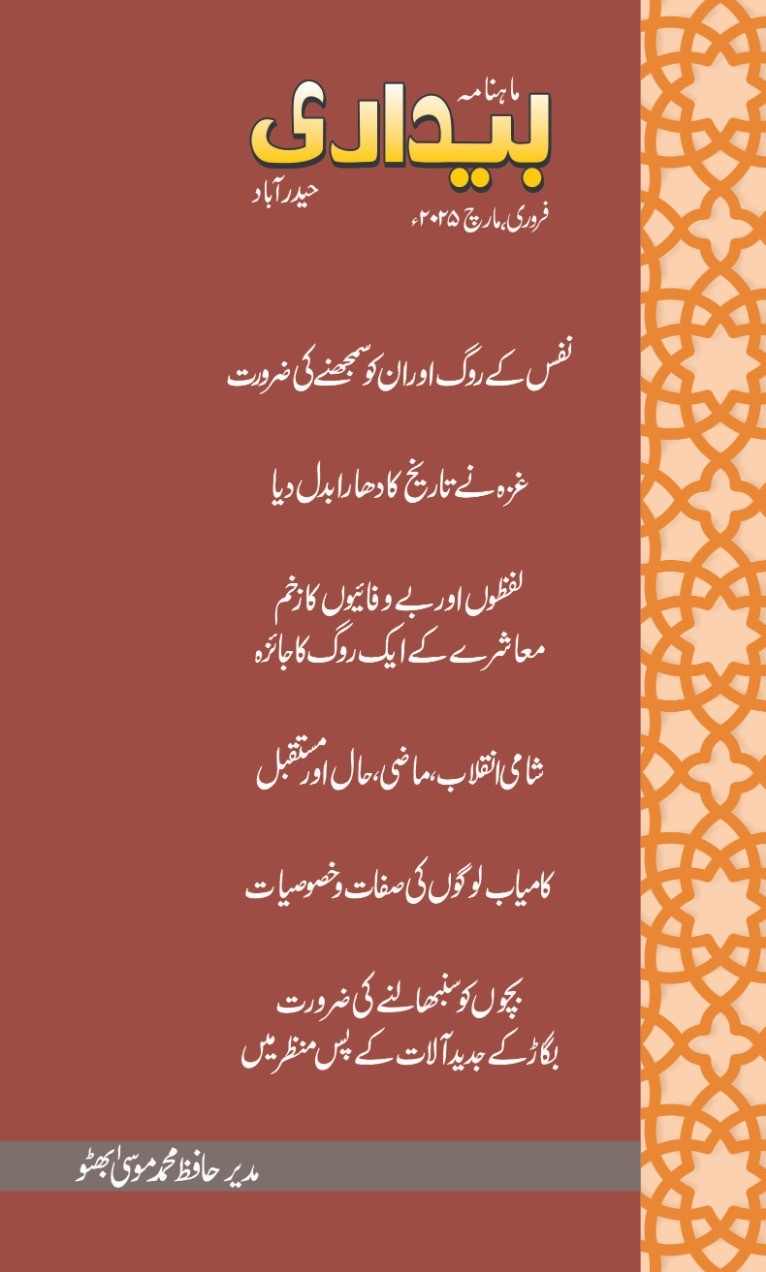 ماہنامہ
بیداری
حیدرآباد
فروری، مارچ ۲۰۲۵ء
نفس کے روگ اور ان کو سمجھنے کی ضرورت
غزہ نے تاریخ کا دھارا بدل دیا
لفظوں اور بے وفائیوں کا زخم
معاشرے کے ایک روگ کا جائزہ
شامی انقلاب، ماضی، حال اور مستقبل
کامیاب لوگوں کی صفات و خصوصیات
بچوں کو سنبھالنے کی ضرورت
بگاڑ کے جدید آلات کے پس منظر میں
مدیر حافظ محمد موسیٰ بھٹو